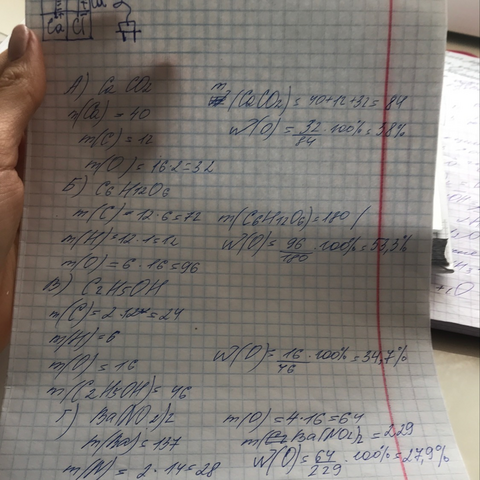 Ca Cl
А) Ca CO2
m(Ca) = 40
m(CaCO2) = 40+12+32 = 84
m(C) = 12
W(O) = 32/84 · 100% = 38%
m(O) = 16·2 = 32
Б) C6H12O6
m(C) = 12·6 = 72
m(C6H12O6) = 180
m(H) = 12·1 = 12
W(O) = 96/180 · 100% = 53,3%
m(O) = 6·16 = 96
В) C2H5OH
m(C) = 2·12 = 24
m(H) = 6
m(O) = 16
W(O) = 16/46 · 100% = 34,7%
m(C2H5OH) = 46
Г) Ba(NO2)2
m(O) = 4·16 = 64
m(Ba) = 137
Ba(NO2)2 = 229
m(N) = 2·14 = 28
W(O) = 64/229 · 100% = 27,9%